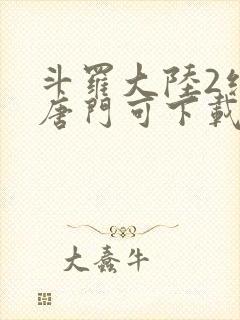 斗羅大陸2
唐門可下載
大蠢牛